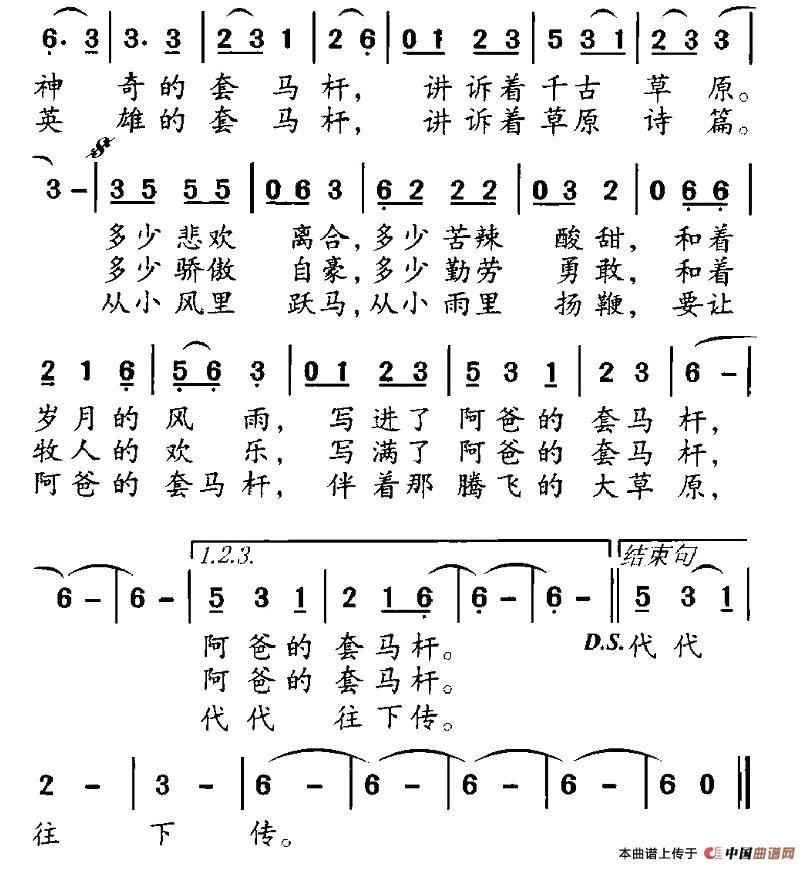 6. 3 | 3. 3 | 2 3 1 | 2 6 | 0 1 2 3 | 5 3 1 | 2 3 3 |
神 奇的 套 马 杆， 讲 诉着 千古 草 原。
英 雄的 套 马 杆， 讲 诉着 草原 诗 篇。
3 - | 3 5 5 5 | 0 6 3 | 6 2 2 2 | 0 3 2 | 0 6 6 |
多少 悲欢 离合，多少 苦辣 酸甜，和着
多少 骄傲 自豪，多少 勤劳 勇敢，和着
从小 风里 跃马，从小 雨里 扬鞭，要让
2 1 6 | 5 6 3 | 0 1 2 3 | 5 3 1 | 2 3 | 6 - |
岁月的 风 雨， 写 进了 阿爸的 套马 杆，
牧人的 欢 乐， 写 满了 阿爸的 套马 杆，
阿爸的 套马 杆， 伴 着那 腾飞的 大草 原，
1.2.3. 结束句
6 - | 6 - | 5 3 1 | 2 1 6 | 6 - | 6 - || 5 3 1 |
阿爸的 套马杆。 D.S. 代代
阿爸的 套马杆。
代代 往下传。
2 - | 3 - | 6 - | 6 - | 6 - | 6 - | 6 0 ||
往 下 传。
本曲谱上传于 中国曲谱网